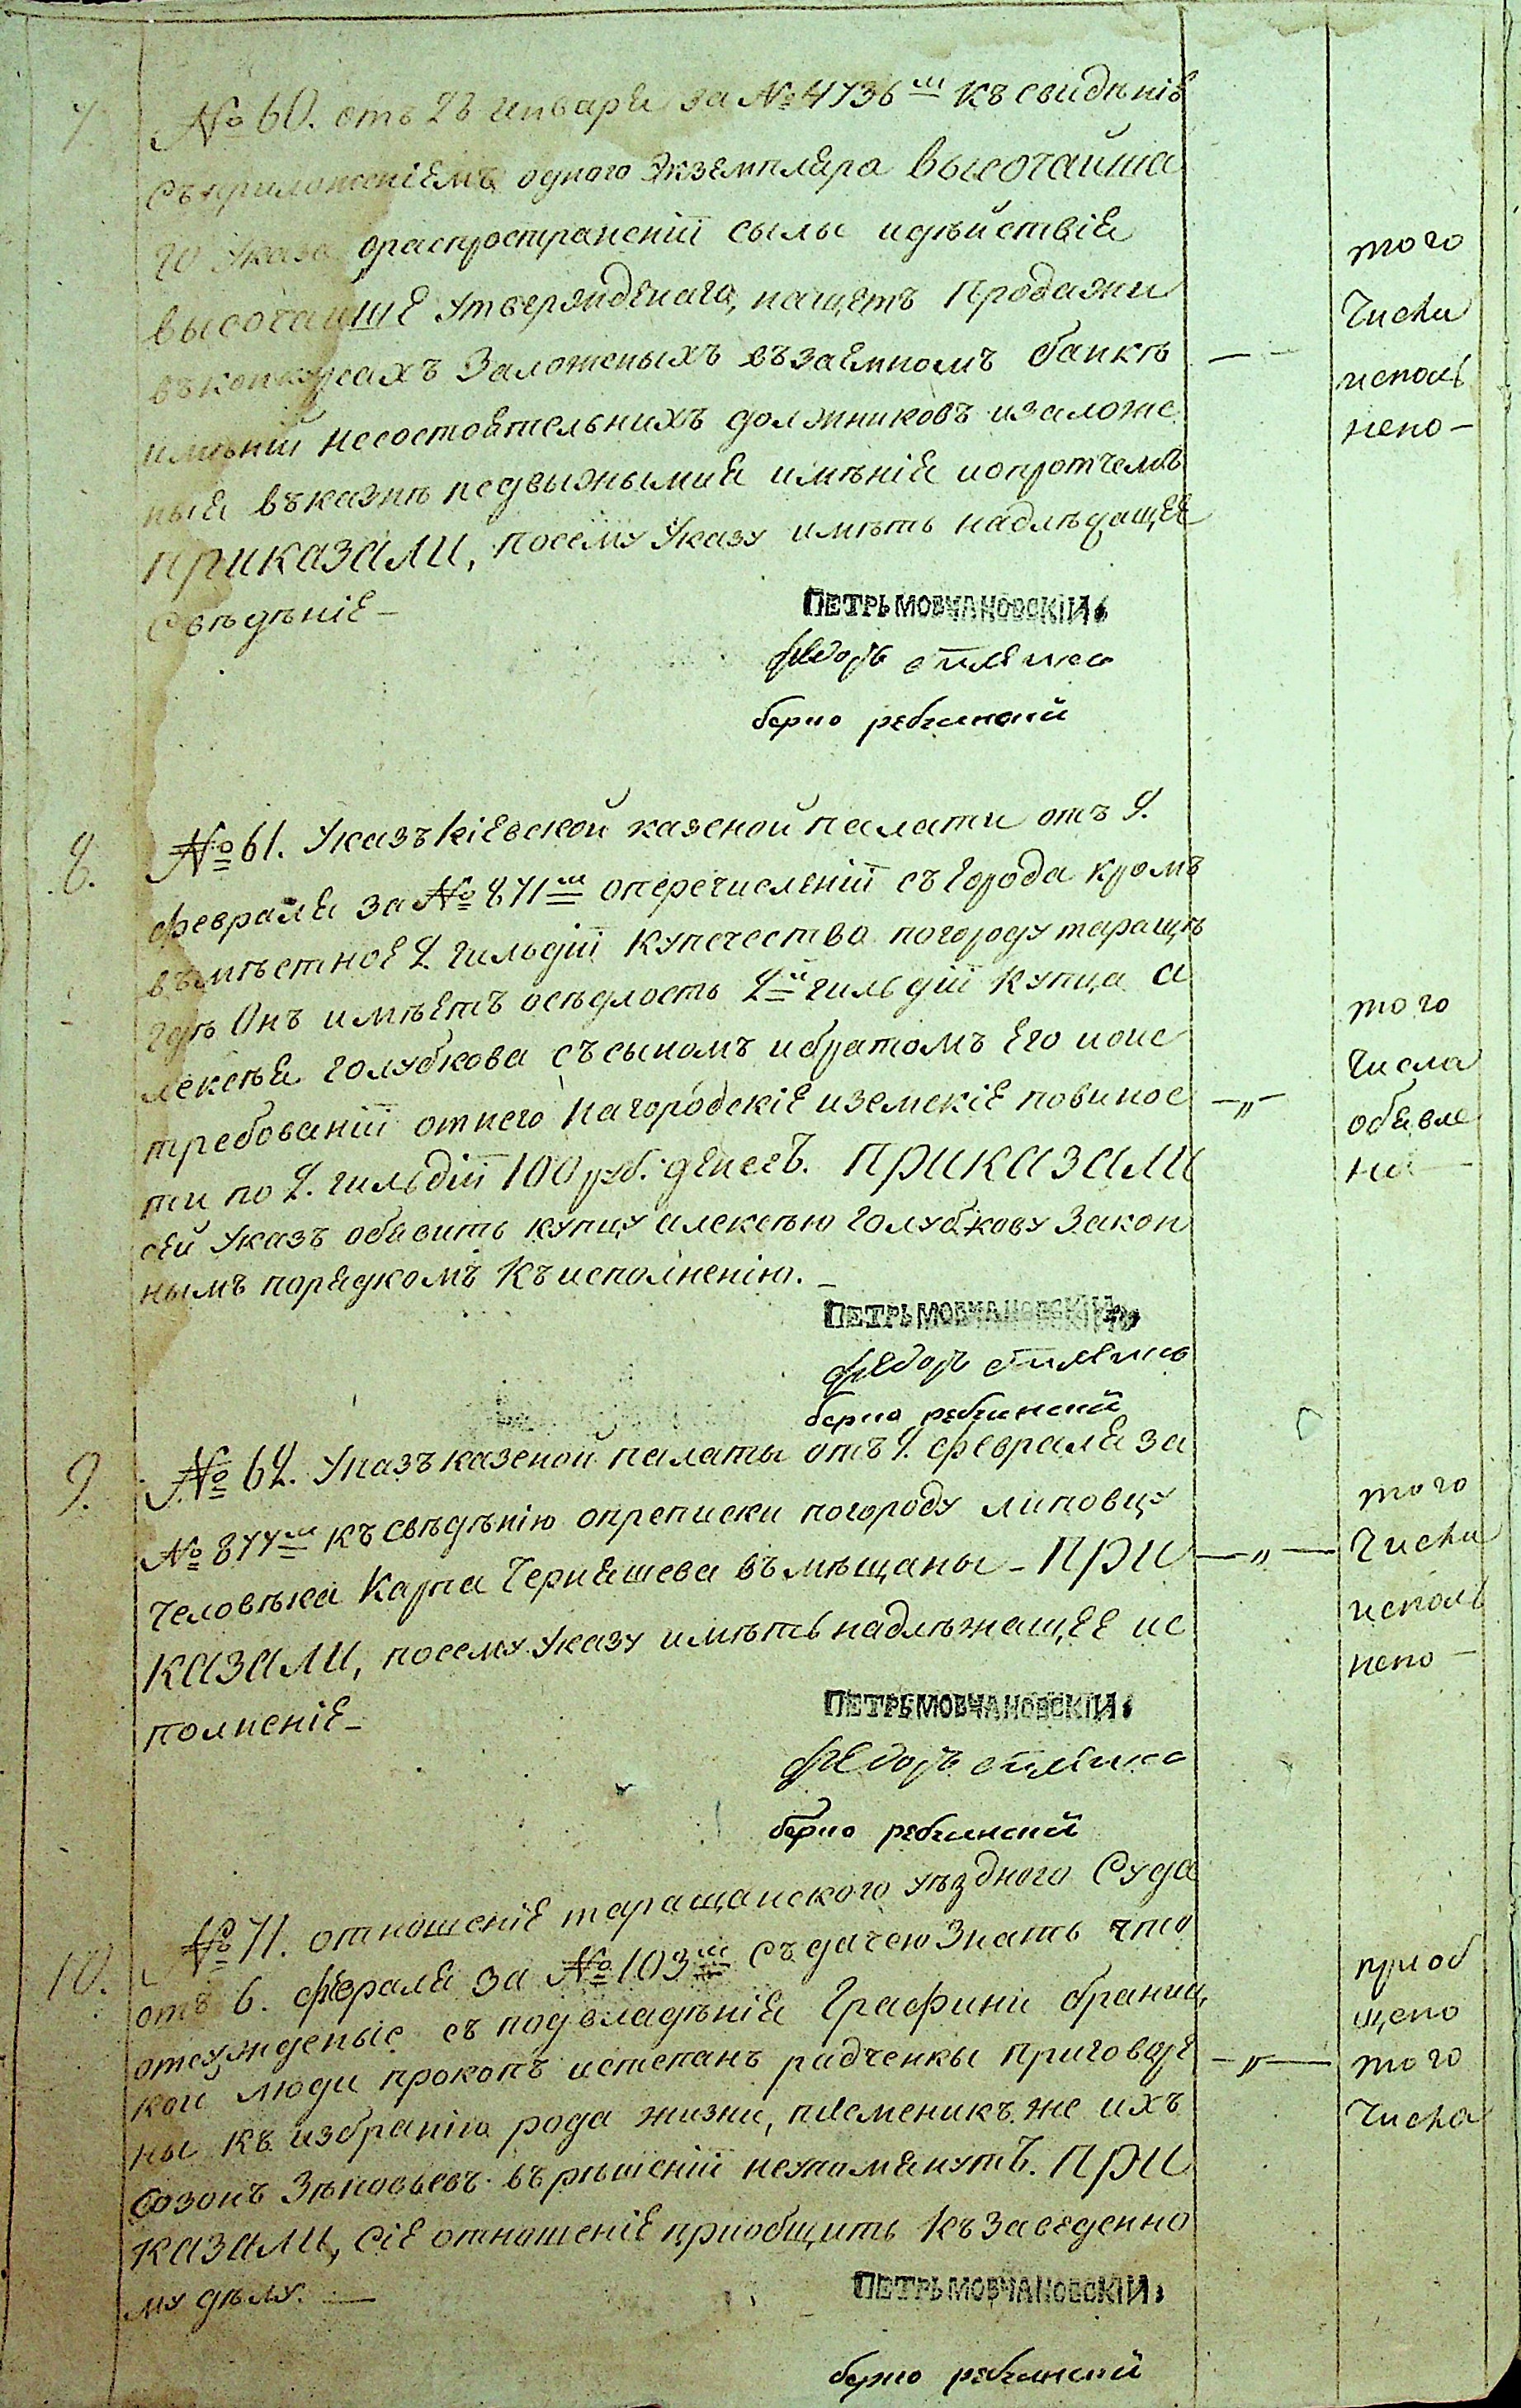 7.
№ 60. отъ 28 января за № 4736м къ свиденію
съ приложеніемъ одного Экземпляра Высочайша
го Указа ораспространеніи сылы идѣйствія
высочайше утвержденаго, нащетъ Продажи
въконкурсахъ Заложеныхъ въ заемномъ банкѣ
имѣній несостоятельнихъ должниковъ изаложе
ныя въказнѣ недвыжымыя имѣнія иопротчемъ
приказали, посему Указу имѣть надлѣжащее
Свѣдѣніе –
того
Числа
исполь
нено –
ПЕТРЬ МОВЧАНОВСКІЙ
федоръ
берко
8.
№ 61. Указъ кіевской казеной палати отъ 9.
февраля за № 871м оперечисленіи съ Города кромѣ
въмѣстное 2 гильдіи купечество погороду таращѣ
гдѣ Онъ имѣетъ осѣдлость 2й гильдіи купца а
лексѣя голубкова съсыномъ ибратомъ Его иоис
требованіи отнего нагородскіе иземскіе повинос
ти по 2. гильдіи 100 руб. денегъ. приказали
сей Указъ обявить купцу алексѣю голубкову Закон
нымъ порядкомъ Къисполненію. –
того
Числа
обявле
но –
ПЕТРЬ МОВЧАНОВСКІЙ
федоръ
берко
9.
№ 62. Указъ казеной палаты отъ 9. февраля за
№ 877м къ свѣдѣнію опреписки погороду липовцу
человѣка Карпа Черняшева въмѣщаны – при
казали, посему Указу имѣть надлѣжащее ис
полненіе –
того
Числа
исполь
нено –
ПЕТРЬ МОВЧАНОВСКІЙ
федоръ
берко
10.
№ 71. отношеніе таращанского уѣздного Суда
отъ 6. февраля за № 103м съ дачею Знать что
отсужденые съ подвладѣнія Графини браниц
кой люди прокопъ истепанъ радченкы приговоре
ны къ избранію рода жизни, племеникъ же ихъ
Созонъ Зѣновьевъ върѣшеніи неупомянутъ. при
казали, сіе отношеніе приобщить Къ Заведенно
му дѣлу. —
приоб
щено
того
Числа
ПЕТРЬ МОВЧАНОВСКІЙ
берко